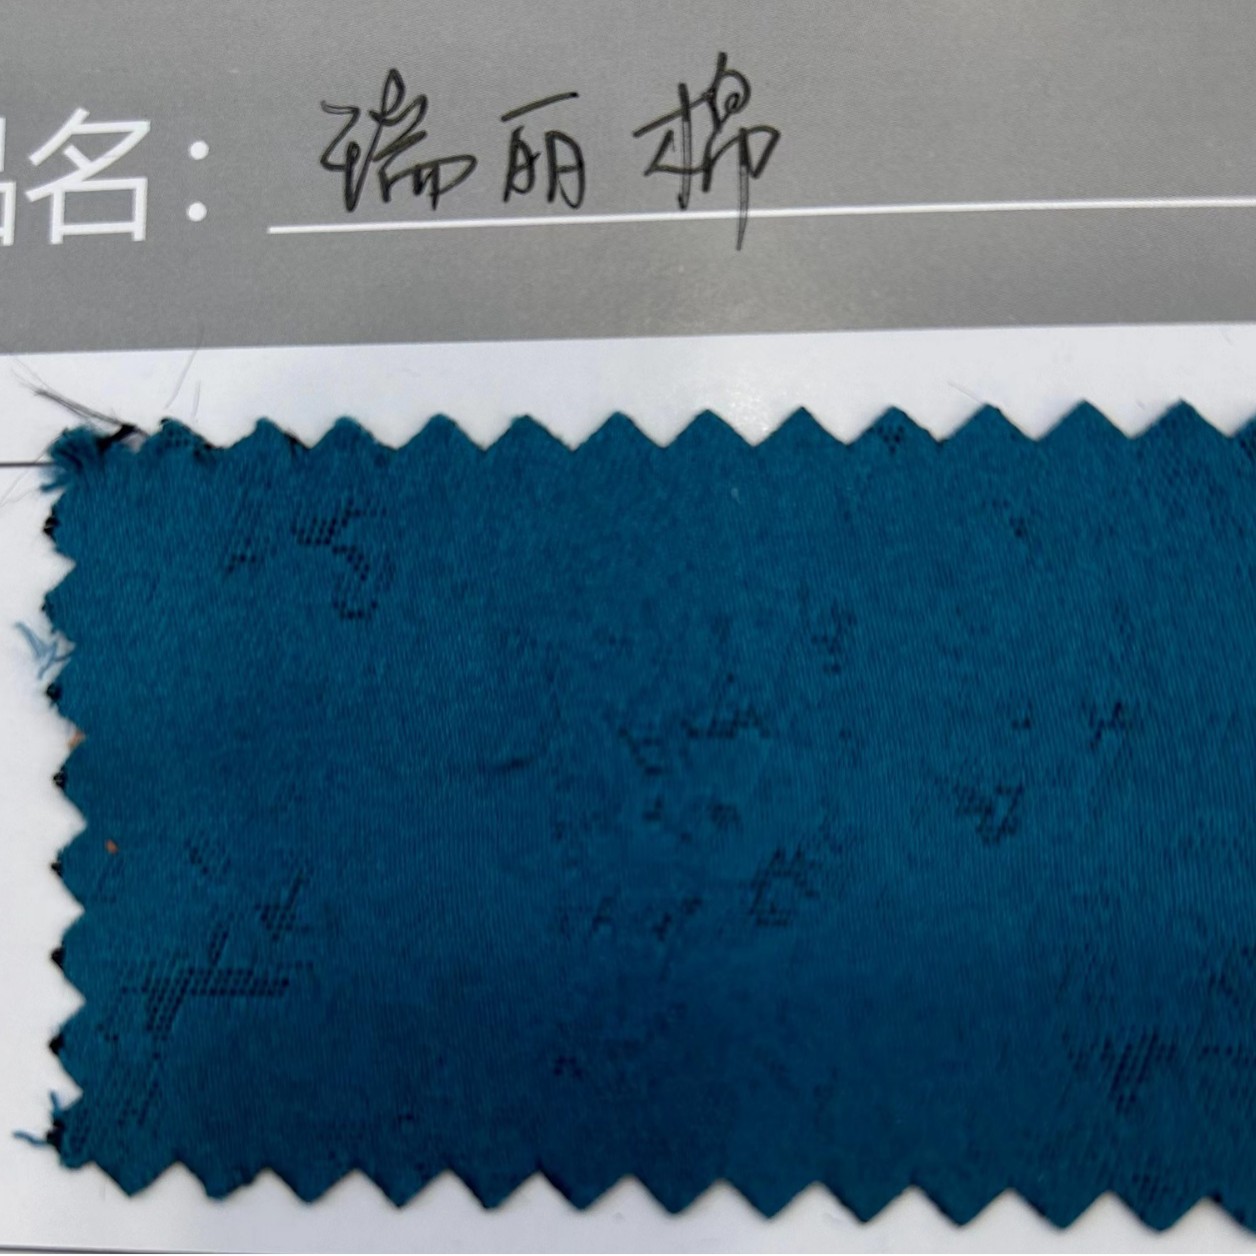 品名：瑞丽棉